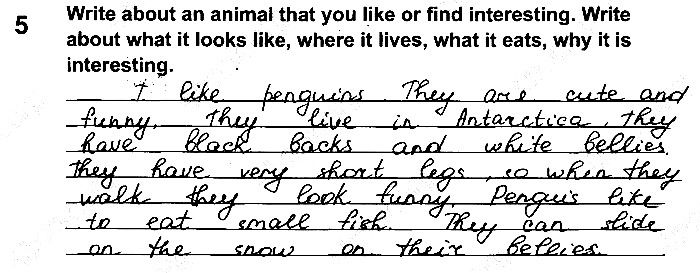 5 Write about an animal that you like or find interesting. Write
about what it looks like, where it lives, what it eats, why it is
interesting.
I like penguins. They are cute and
funny. They live in Antarctica. They
have black backs and white bellies.
They have very short legs, so when they
walk they look funny. Penguis like
to eat small fish. They can slide
on the snow on their bellies.